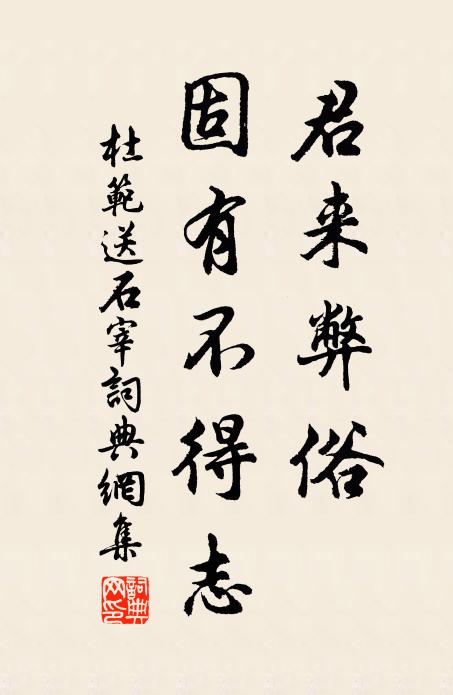 君来弊俗
固有不得志
杜範送石宰詞典網集
詞典网印